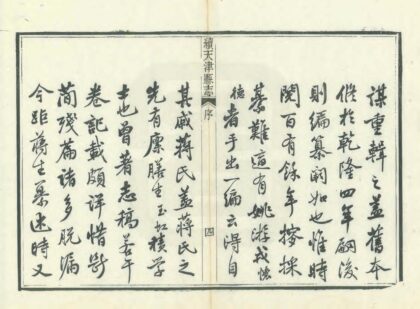 謀重輯之蓋舊本
脩於乾隆四年嗣後
則編纂闕如也惟時
閱百有餘年搜採
綦難適有姚游戎懷
德者手出一編云得自
續天津縣志 序 四
其戚蔣氏蓋蔣氏之
先有廩膳生玉虹積學
士也曾著志稿若干
卷記載頗詳惜斷
簡殘篇諸多脫漏
今雖蔣生纂述時又